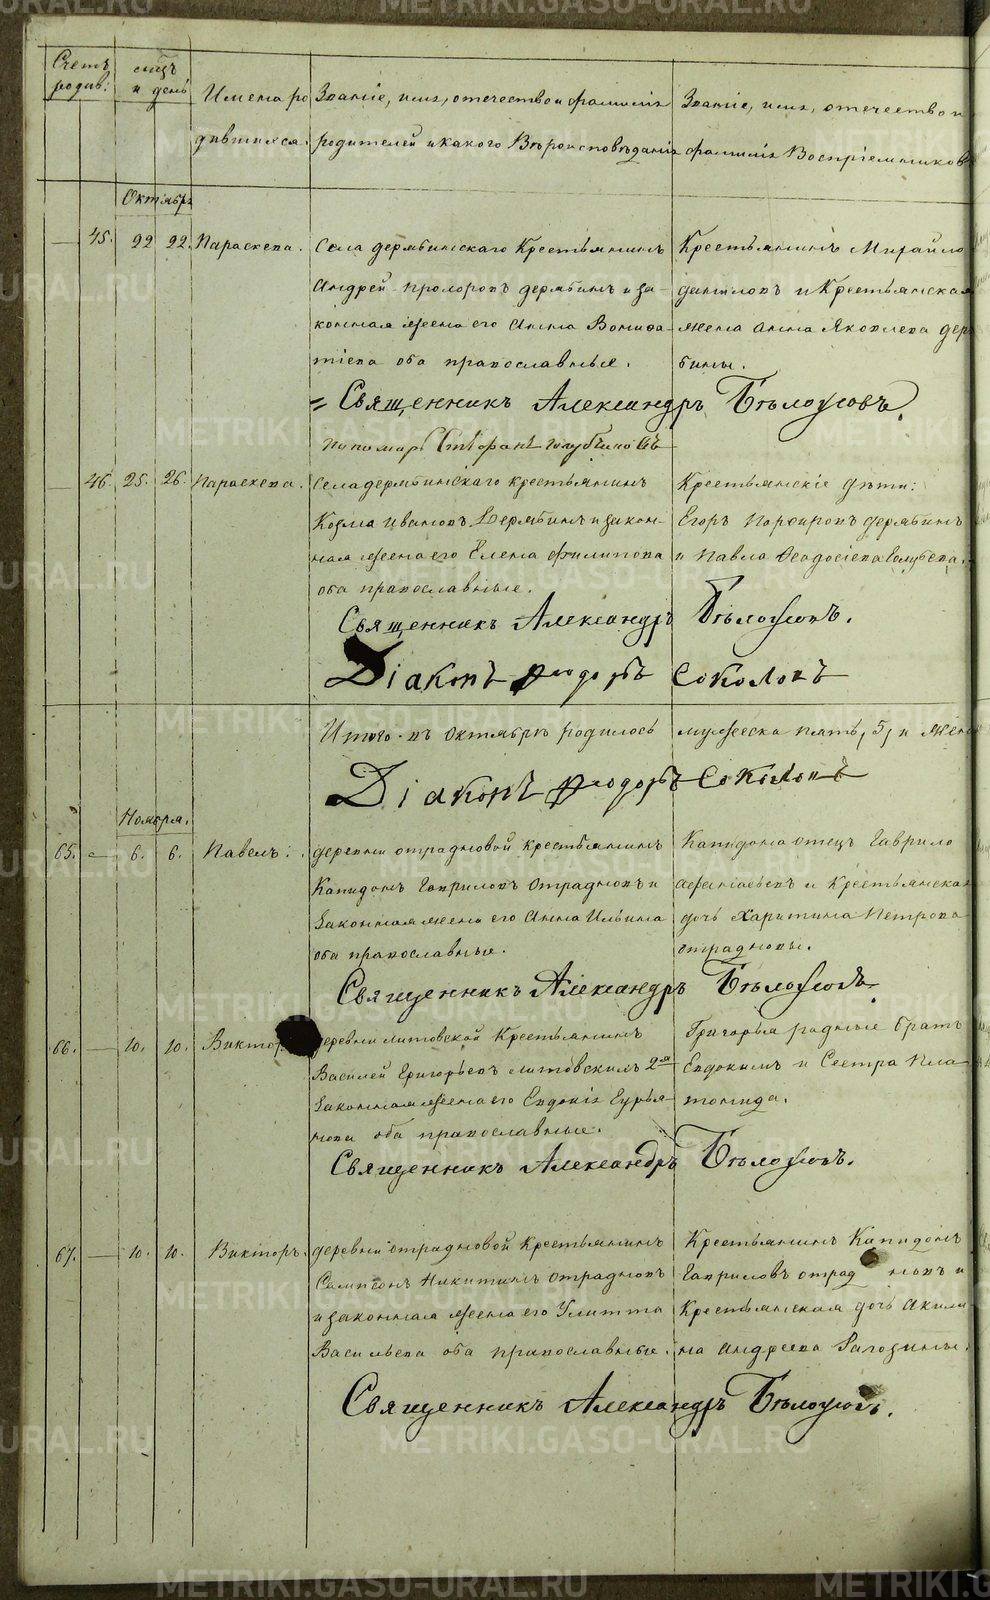 Счетъ родив:
мѣсцъ и день
Имена родившихся.
Званіе, имя, отечество и фамилія
родителей и какого Вѣроисповѣданія
Званіе, имя, отечество и
фамилія Воспріемниковъ
Октябрь
45. 22 22. Параскева.
Села дерябинскаго Крестьянинъ
Андрей Прохоровъ дерябинъ и за-
конная жена его Анна Вонифа-
тіева оба православные.
Крестьянинъ Михайло
даниловъ и Крестьянская
жена Анна Яковлева деря
бины.
Священникъ Александръ Бѣлоусовъ.
пономарь Стефанъ
46. 25. 26. Параскева.
Села дерябинскаго крестьянинъ
Козма Ивановъ Дерябинъ и закон-
ная жена его Елена Филипова
оба православные.
Крестьянскіе дѣти:
Егоръ Порфировъ дерябинъ
и Павла Феодосіева Голубева.
Священникъ Александръ Бѣлоусовъ.
Діаконъ Ѳеодоръ Соколовъ
Итого въ Октябрѣ родилось мужеска пять, 5, и жен
Діаконъ Ѳеодоръ Соколовъ
Ноября.
65. 6. 6. Павелъ.
деревни отрадновой крестьянинъ
Капидонъ Гавриловъ Отрадновъ и
законная жена его Анна Ильина
оба православные.
Капидона отецъ Гаврило
Афанасьевъ и Крестьянская
дочь Харитина Петрова
отрадновы.
Священникъ Александръ Бѣлоусовъ.
66. 10. 10. Виктор
деревни литовской Крестьянинъ
Василей Григорьевъ литовскихъ 2я
законная жена его Евдокія Гурья-
нова оба православные.
Григорья родные братъ
Евдокимъ и Сестра Пла-
тонида.
Священникъ Александръ Бѣлоусовъ.
67. 10. 10. Викторъ.
деревни отрадновой Крестьянинъ
Сампсонъ Никитинъ отрадновъ
и законная жена его Улитта
Васильева оба православные.
Крестьянинъ Капидонъ
Гавриловъ отрадновъ и
Крестьянская дочь Акили
на Андреева Рагозины.
Священникъ Александръ Бѣлоусовъ.
METRIKI.GASO-URAL.RU